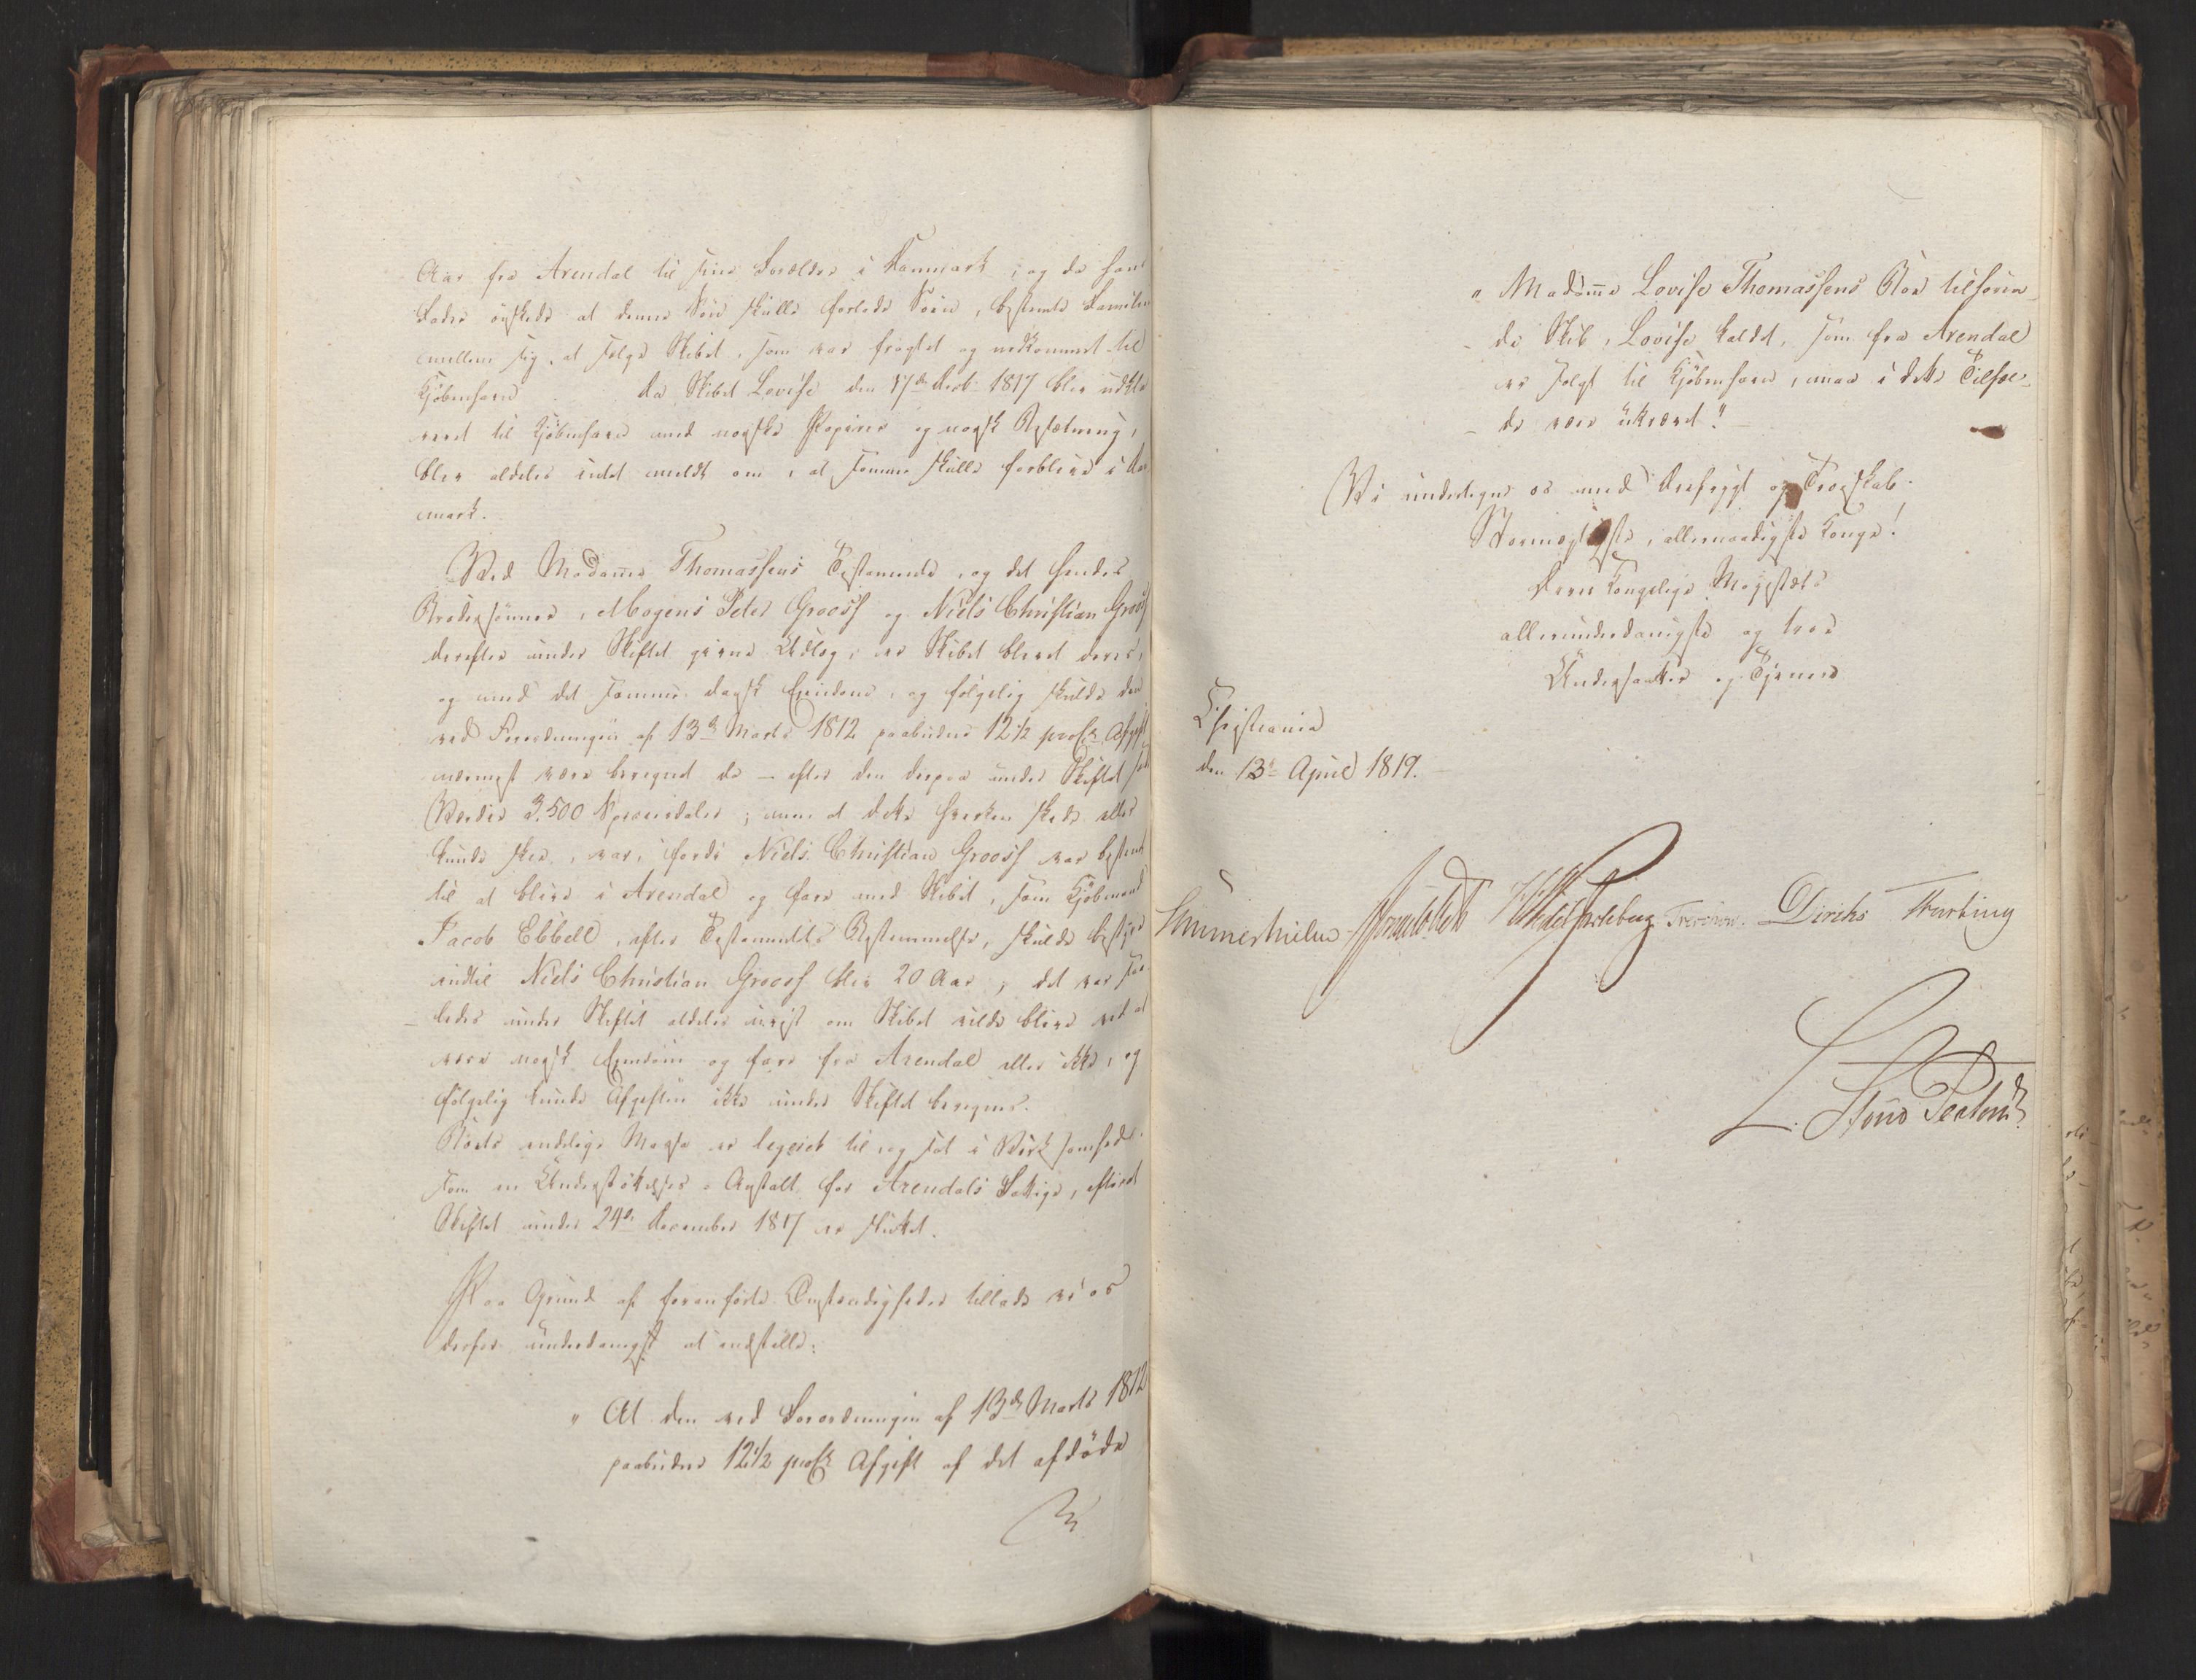 Aar fra Arendal til sine Forældre i Danmark, og da hans
Fader ønskede at denne Søn skulle forlade Søen, bestemte Familien
mellem sig, at sælge Skibet, som var fragtet og nedkommet til
Kjøbenhavn. da Skibet Lovise den 17de Decb: 1817 blev udkla
reret til Kjøbenhavn med norske Papirer og norsk Besætning,
blev aldeles intet meldt om, at samme skulle forblive i Dan
mark.
Ved Madame Thomassens Testamente, og det hendes
Brodersønner, Mogens Peter Grooss og Niels Christian Grooss
derefter under Skiftet givne Udlæg, er Skibet blevet deres,
og med det samme dansk Eiendom, og følgelig skulde den
ved Forordningen af 13de Marts 1812 paabudne 12 1/2 proCt Afgift
nærmest være beregnet da – efter den derpaa under Skiftet satte
Værdie 3,500 Speciesdaler; men at dette hverken skede eller
kunde skee, var, fordi Niels Christian Grooss var bestemt
til at blive i Arendal og fare med Skibet, som Kjøbmand
Jacob Ebbell, efter Testamentets Bestemmelse, skulde bestyre
indtil Niels Christian Grooss blev 20 Aar; det var saa-
ledes under Skiftet aldeles uvist om Skibet vilde blive ved at
være norsk Eiendom og fare fra Arendal eller ikke, og
følgelig kunde Afgiften ikke under Skiftet beregnes.
Boets endelige Masse er legeret til og sat i Virksomhed
som en Understøttelses-Anstalt for Arendals Fattige, efterat
Skiftet under 24de December 1817 er sluttet.
Paa Grund af foranførte Omstændigheder tillade vi os
derfor underdanigst at indstille:
" At den ved Forordningen af 13de Marts 1812
paabudne 12 1/2 proCt Afgift af det afdøde
" Madame Lovise Thomassens Boe tilhøren-
- de Skib, Lovise kaldet, som fra Arendal
- er solgt til Kjøbenhavn, maa i dette Tilfæl-
- de være ukrævet."
Vi undertegne os med Ærefrygt og Troskab.
Stormægtigste, allernaadigste Konge!
Deres Kongelige Majestæts
allerunderdanigste og troe
Undersaatter og Tjenere
Christiania
den 13de April 1819.
Sommerhielm Wedel Jarlsberg Treschow. Diriks Krebs Motzfeldt
L. Stoud Platou